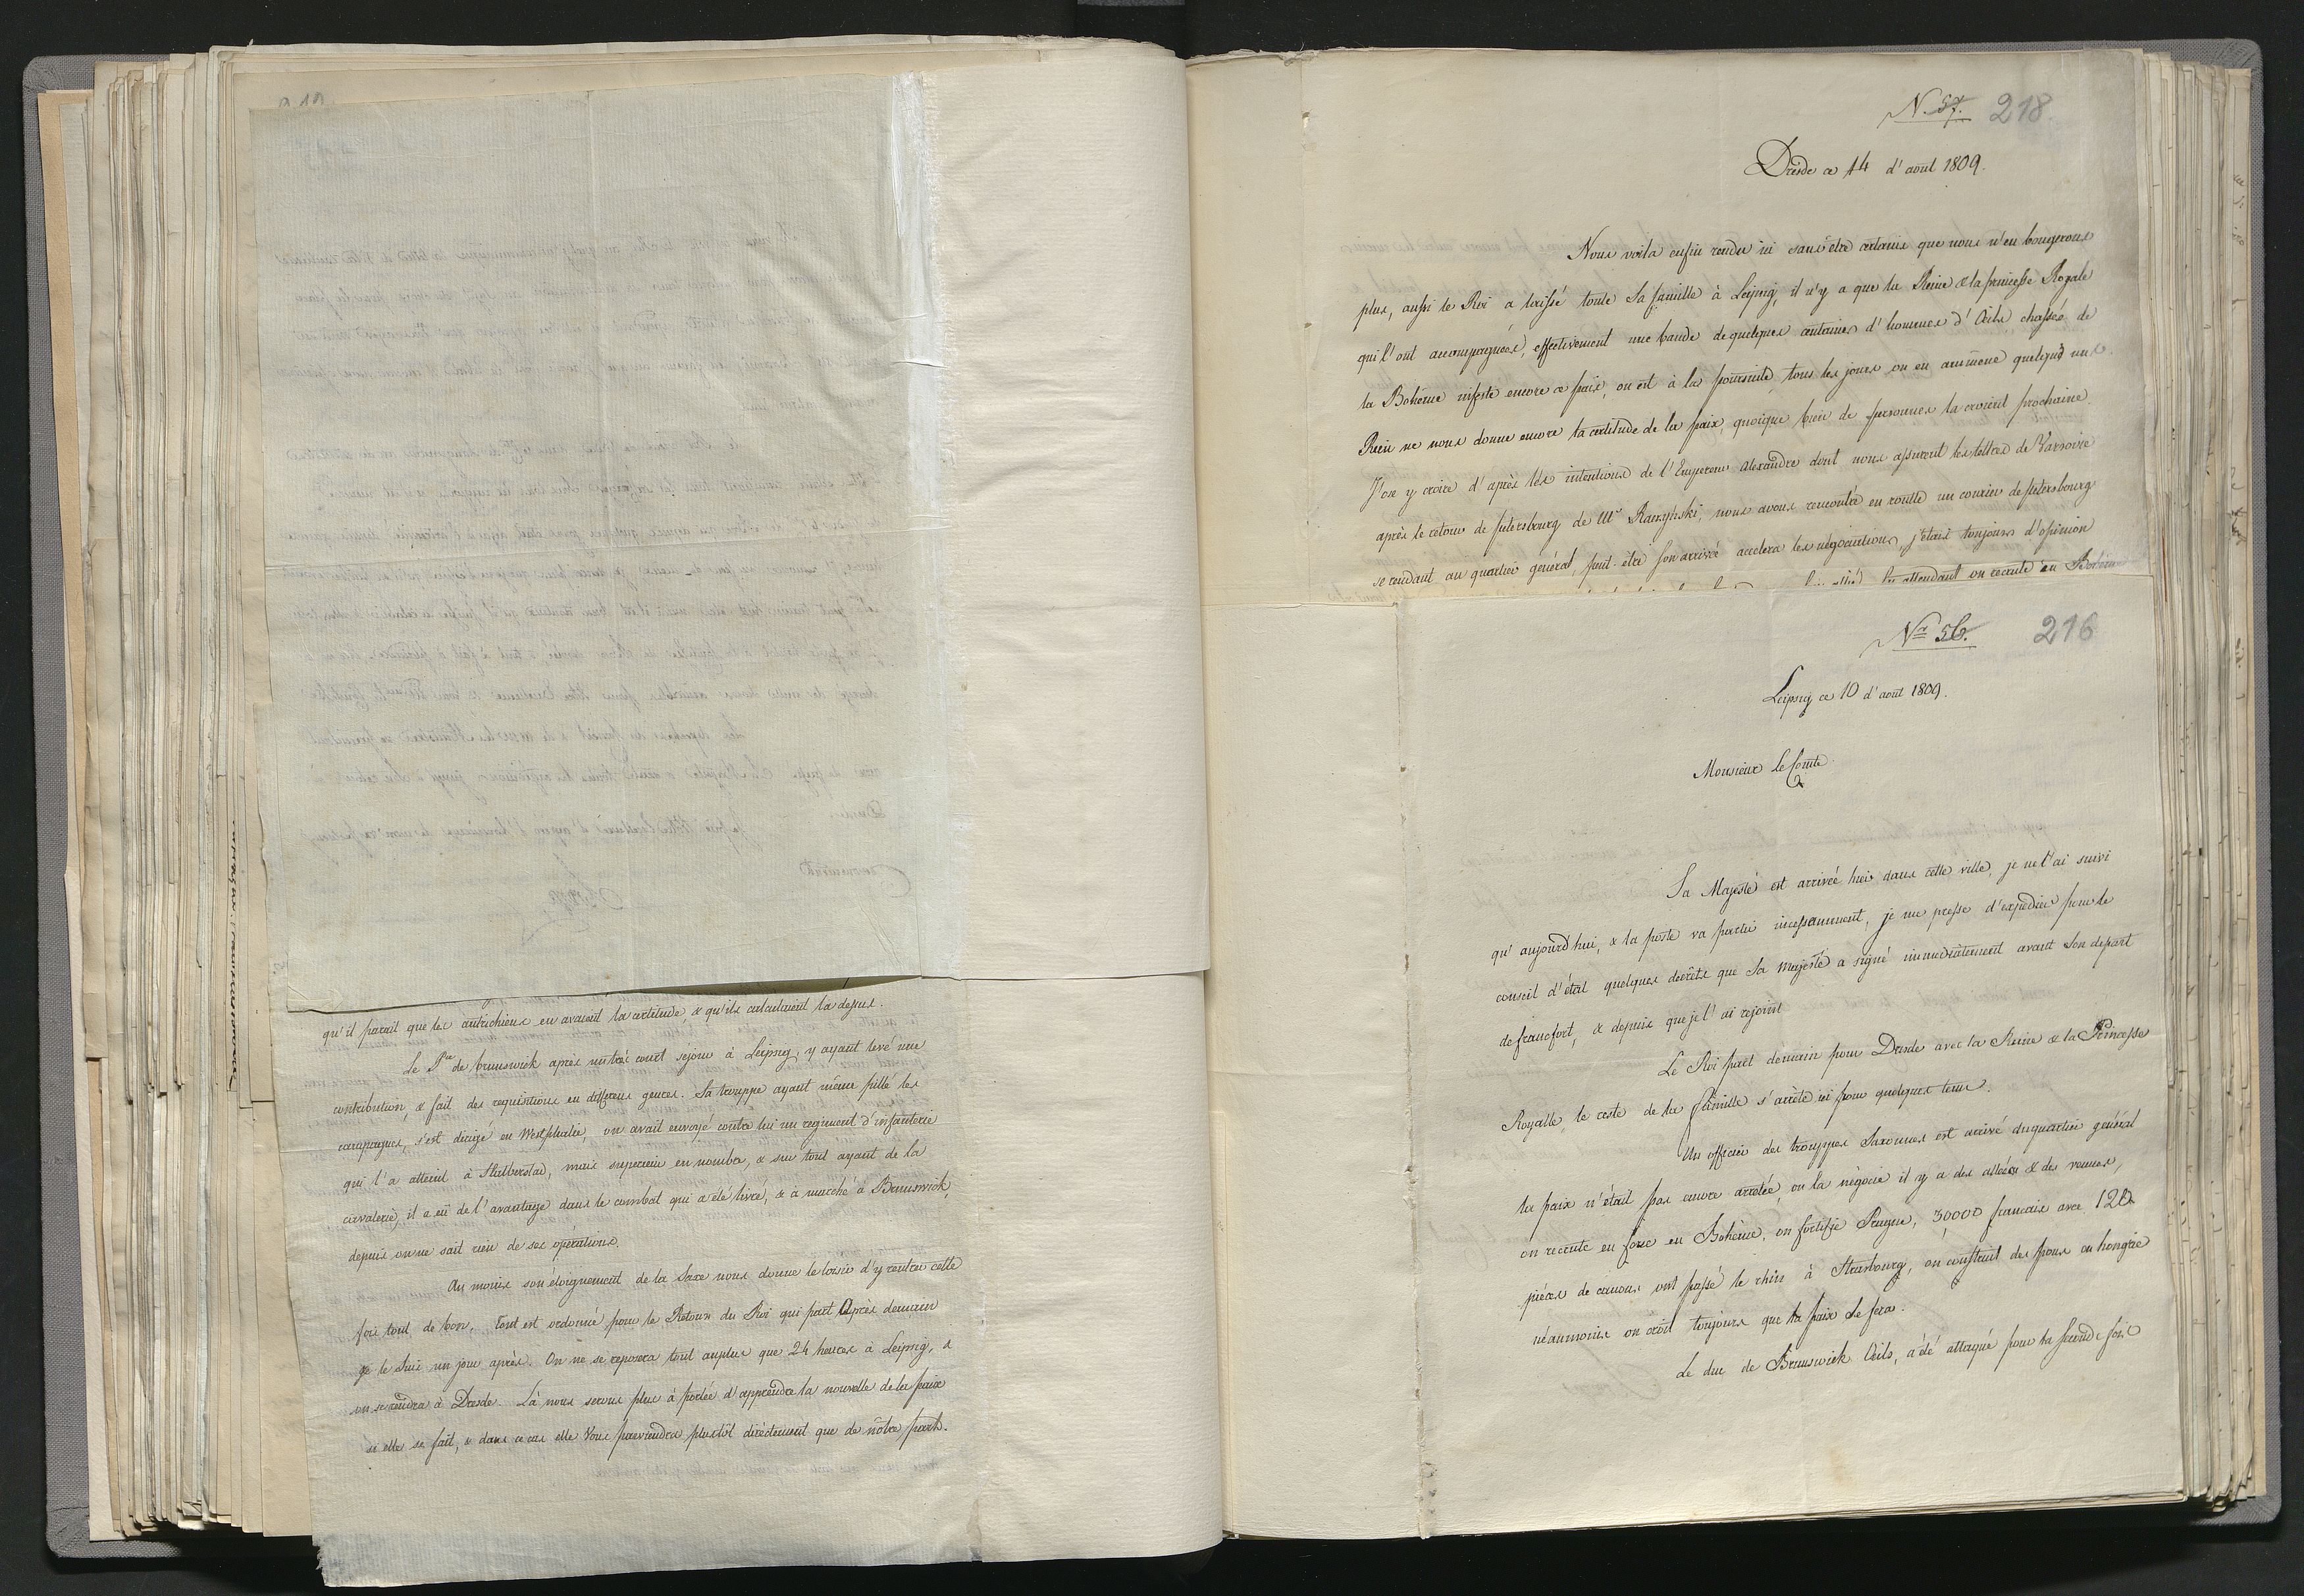 qu'il parait que les autrichiens en avaient la certitude & qu'ils calculaient la depus.
Le Pce de brunswick après un très court sejour à Leipsig, y ayant levé une
contribution, & fait des requisitions en differens genres. Sa trouppe ayant même pillé les
campagnes, s'est dirigé en Westphalie, on avait envoyé contre lui un regiment d'infanterie
qui l'a atteint à Halberstad, mais superieur en nombre, & sur tout ayant de la
cavalerie, il a eû de l'avantage dans le combat qui a été livré, & a marché à Brunswick,
depuis on ne sait rien de ses opérations.
Au moins son eloignement de la Saxe nous donne le loisir d'y rentrer cette
fois tout de bon. Tout est ordonné pour le Retour du Roi qui part Après demain
je le suis un jour après. On ne se reposera tout au plus que 24 heures à Leipsig, &
on se rendra à Dresde. Là nous serons plus à portée d'apprendre la nouvelle de la paix
si elle se fait, & dans ce cas elle Vous parviendra plustôt directement que de nôtre part.
N. 57. 218.
Dresde ce 14 d'aout 1809.
Nous voila enfin rendu ici sans être certains que nous n'en bougerons
plus, aussi le Roi a laissé toute Sa famille à Leipsig, il n'y a que la Reine & la princesse Royale
qui l'ont accompagnées, effectivement une bande de quelques centaines d'hommes d'Oels chassés de
la Bohême infeste encore ce païs, on est à la poursuite, tous les jours on en amméne quelqu'uns
Rien ne nous donne encore la certitude de la paix, quoique bien de personnes la croient prochaine.
J'ose y croire d'après les intentions de l'Empereur Alexandre dont nous assurent les lettres de Varsovie
après le retour de petersbourg de Mr Raczynski, nous avons rencontré en routte un courier de petersbourg
se rendant au quartier général, peut-être son arrivée accelera les négociations, j'étais toujours d'opinion
En attendant on recrute en Bohême
Nr 56. 216
Leipsig ce 10 d'août 1809.
Monsieur le Comte
Sa Majesté est arrivée hier dans cette ville, je ne l'ai suivi
qu'aujourd'hui, & la poste va partir incessamment, je me presse d'expedier pour le
conseil d'état quelques decrets que Sa Majesté a signé immediatement avant Son depart
de francfort, & depuis que je l'ai rejoint
Le Roi part demain pour Dresde avec la Reine & la Princesse
Royalle, le reste de la famille s'arrête ici pour quelques tems.
Un officier des trouppes Saxonnes est arrivé du quartier général
la paix n'était pas encore arretée, on la négocie il y a des allées & des venues,
on recrute en force en Bohême, on fortifie Prague, 30000 francais avec 120
pièces de canons ont passé le rhin à Strasbourg, on construit des ponts en hongrie
néanmoins on croit toujours que la paix se fera.
Le duc de Brunswick Oels, a été attaqué pour la seconde fois